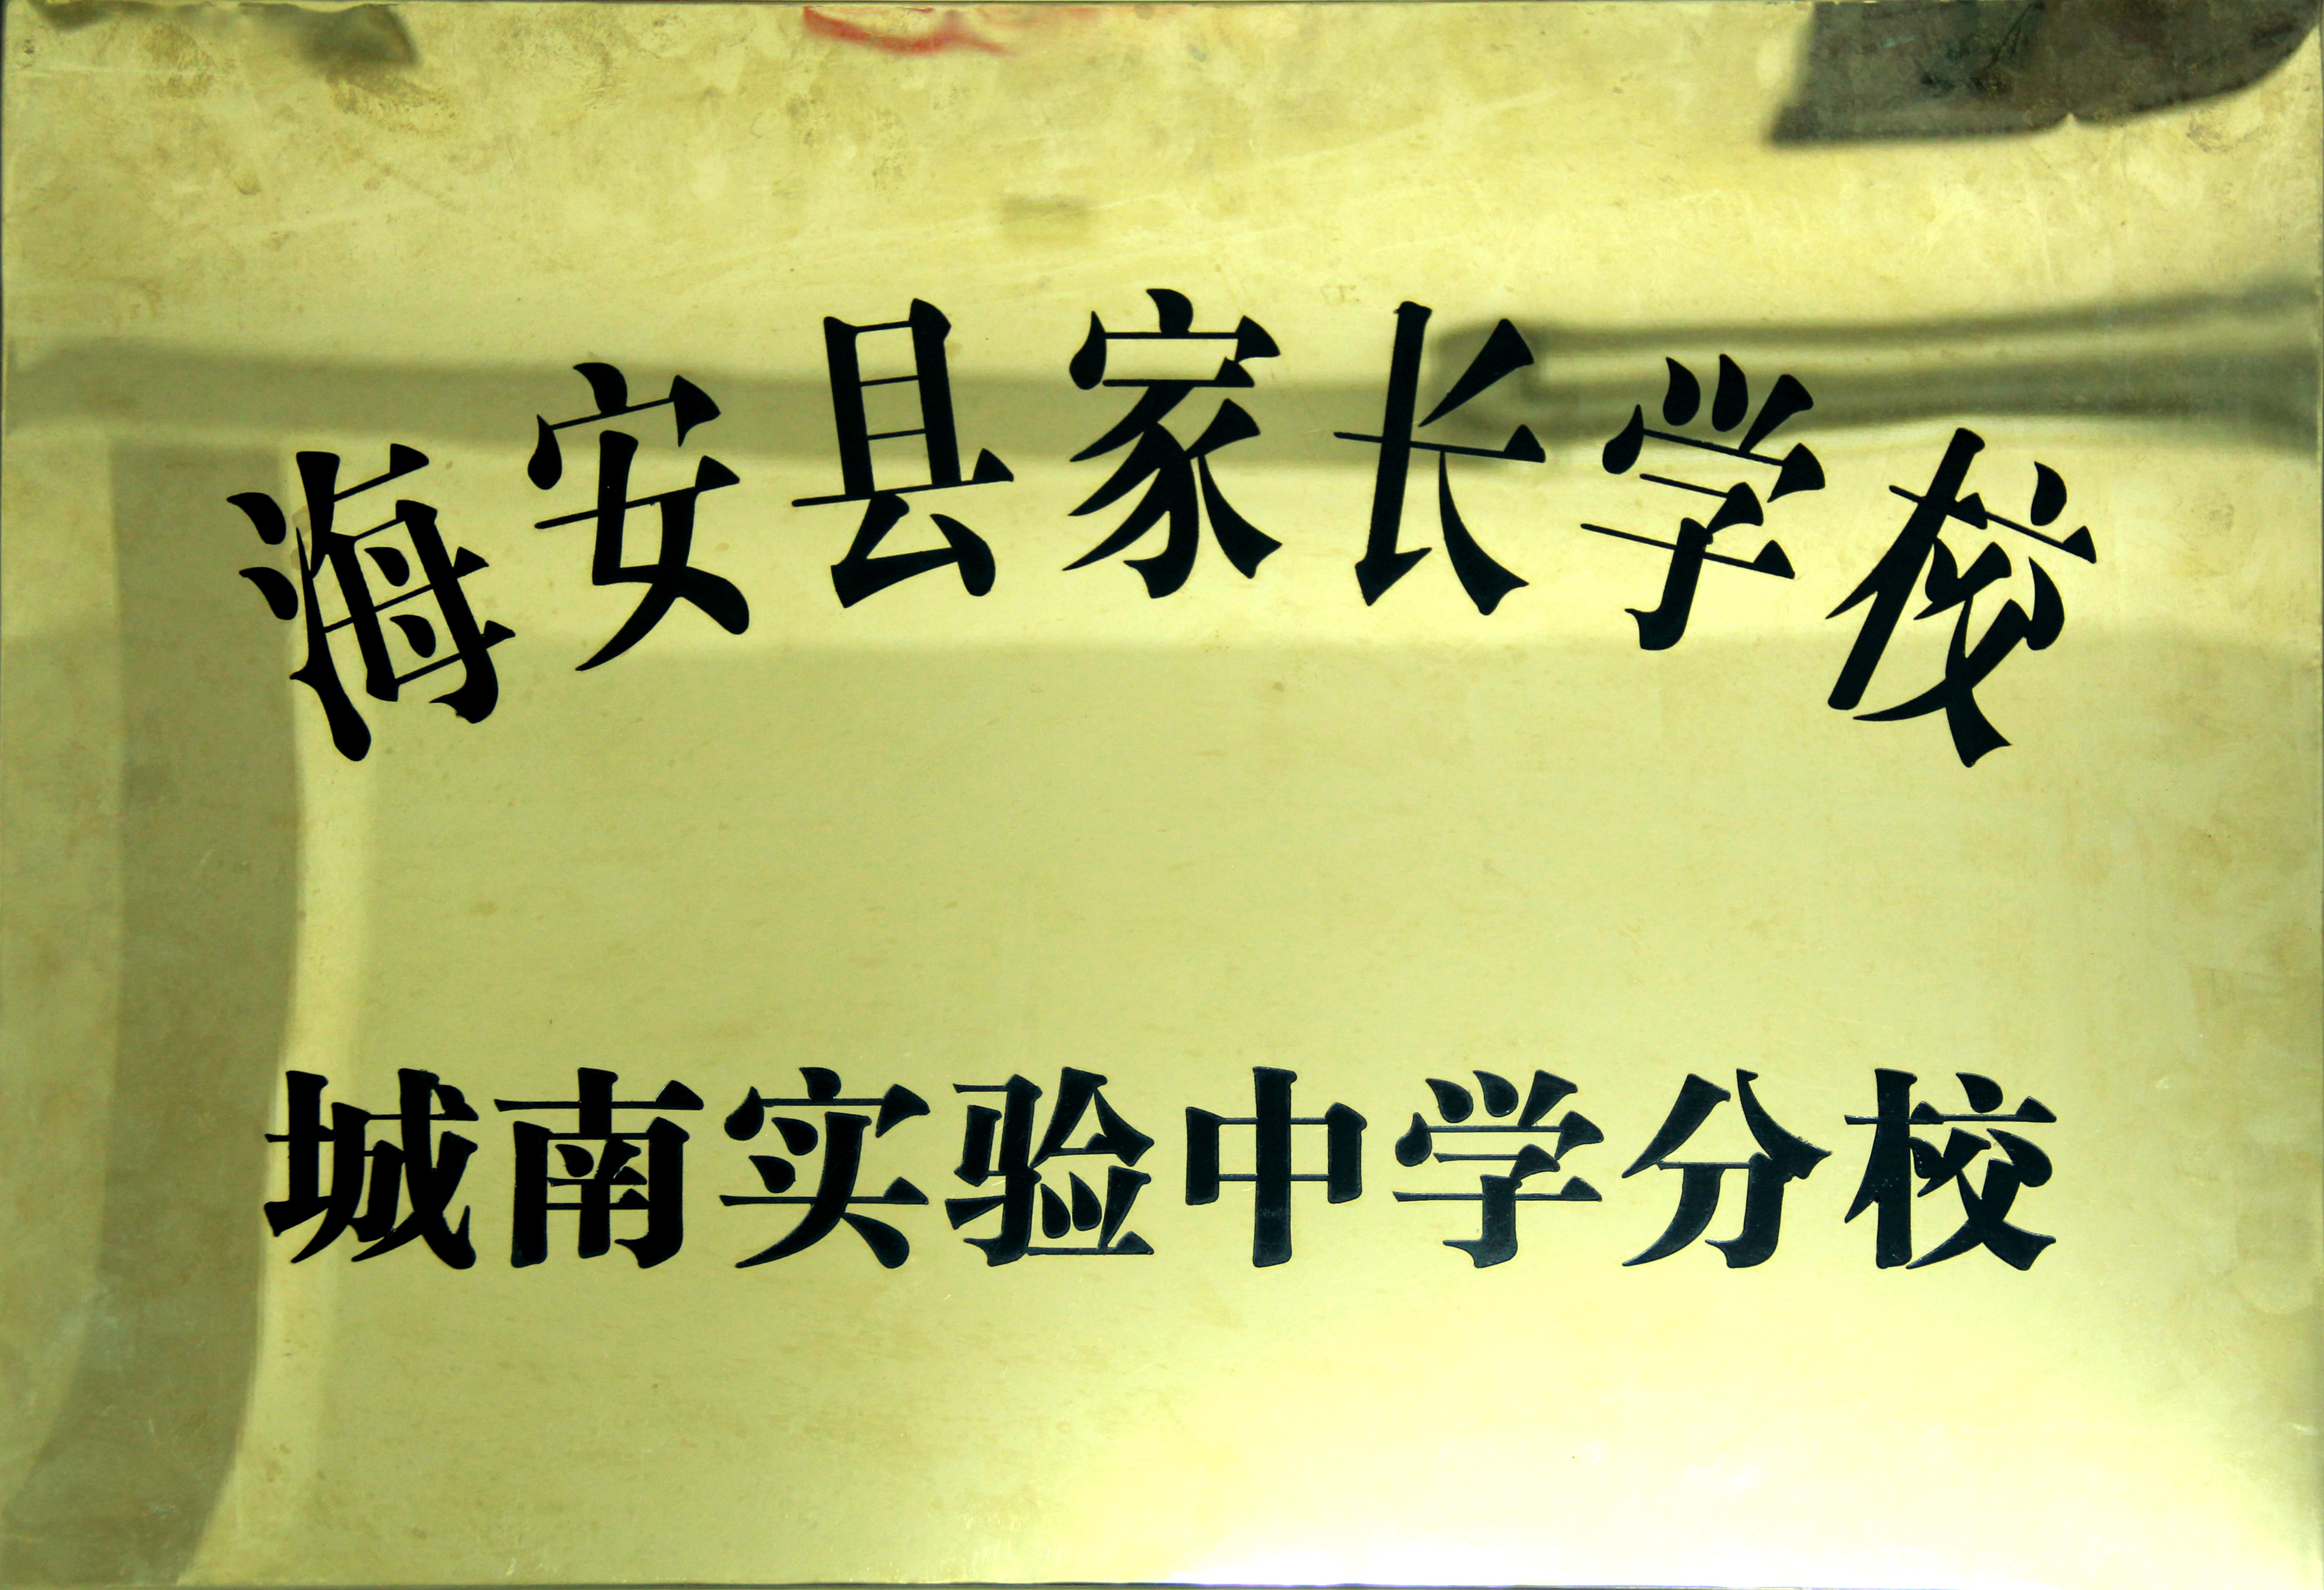 海安县家长学校
城南实验中学分校